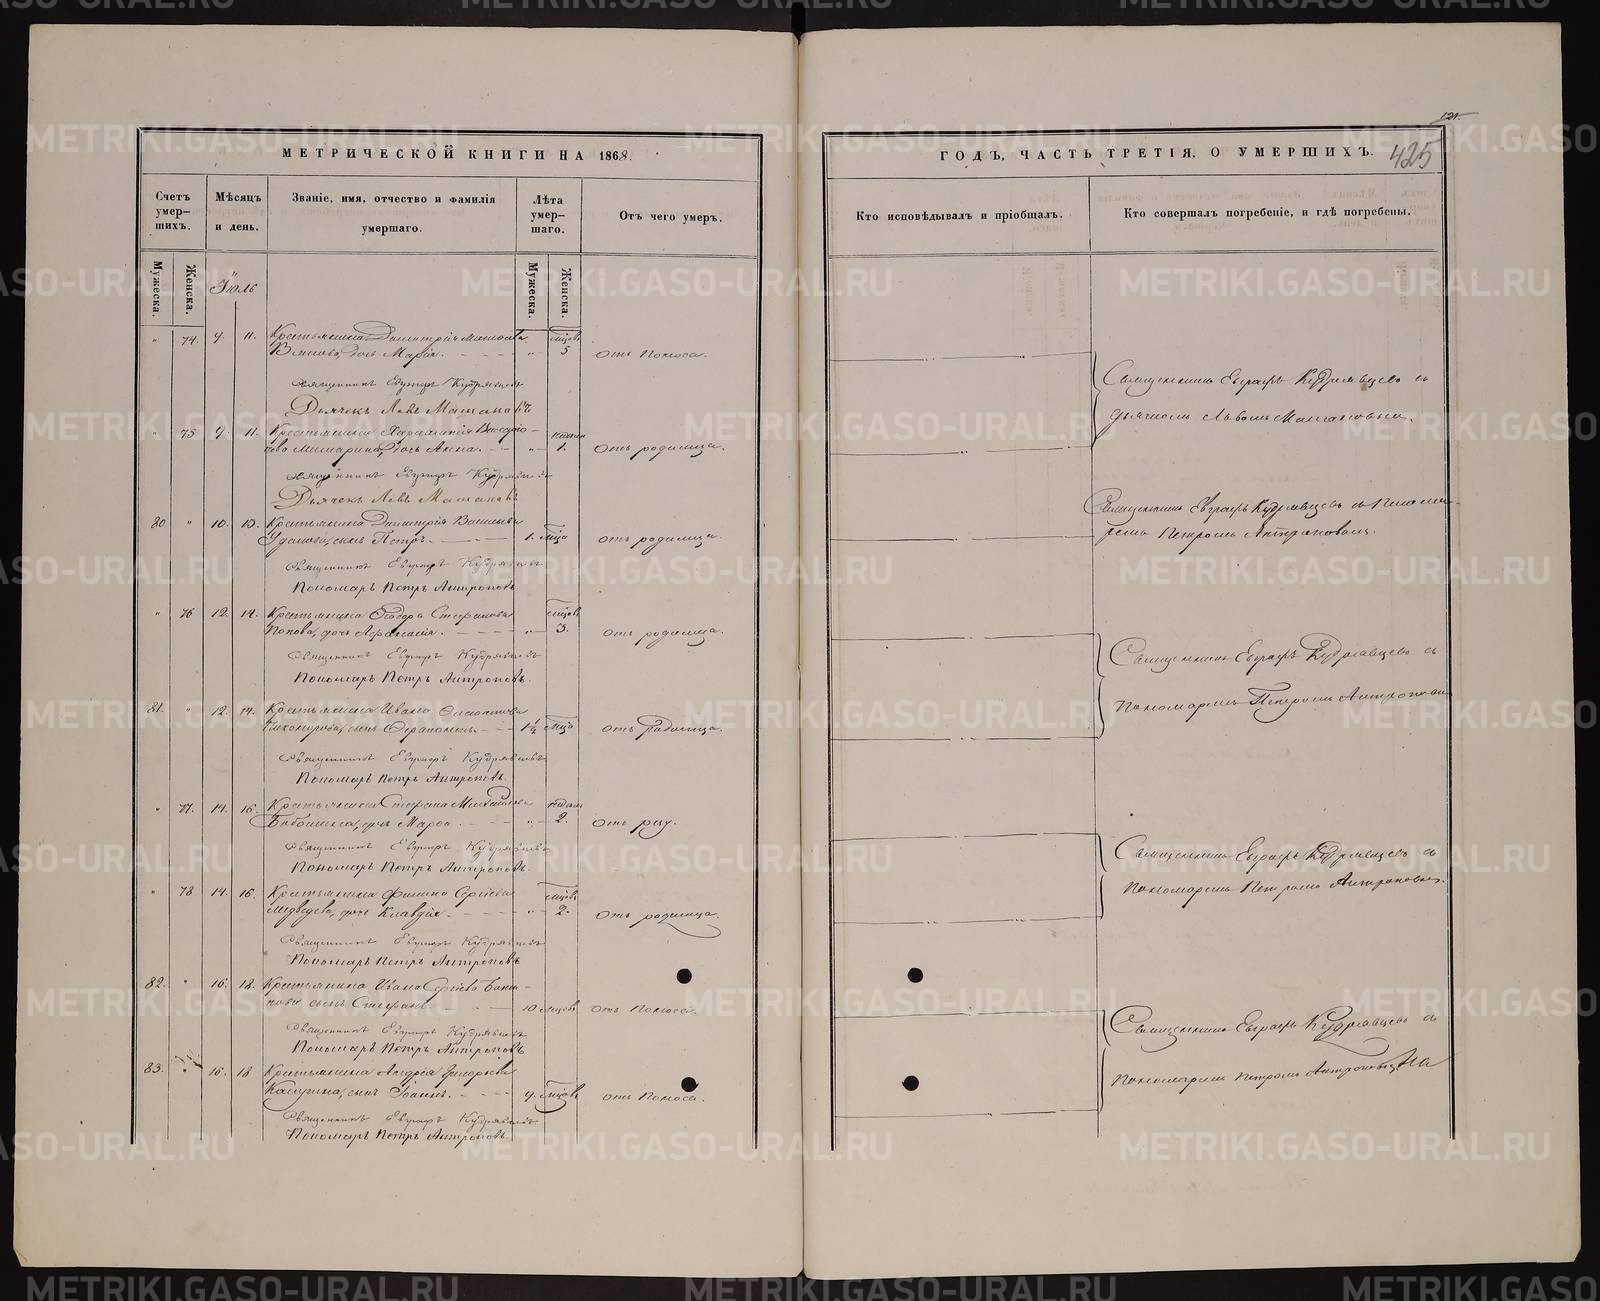 МЕТРИЧЕСКОЙ КНИГИ НА 1868.
Счетъ умер-шихъ.
Мѣсяцъ и день.
Званіе, имя, отчество и фамилія умершаго.
Лѣта умер-шаго.
Отъ чего умеръ.
Мужеска.
Женска.
Мужеска.
Женска.
Іюль
" 74. 9. 11. Крестьянина Димитрія
дочь Марія. мцовъ 5 отъ поноса.
Священникъ Евграфъ Кудрявцевъ
Дьячекъ Левъ Машановъ
" 75 9. 11. Крестьянина
дочь Анна. недѣли 1. отъ родимца.
Священникъ Евграфъ Кудрявцевъ
Дьячекъ Левъ Машановъ
80 " 10. 13. Крестьянина Димитрія Васильева
сынъ Петръ. 1. мца отъ родимца.
Священникъ Евграфъ Кудрявцевъ
Пономарь Петръ Антроповъ.
" 76 12. 14. Крестьянина Ѳеодора Стефанова
Попова, дочь Афанасія. мцовъ 3. отъ родимца.
Священникъ Евграфъ Кудрявцевъ
Пономарь Петръ Антроповъ.
81. " 12. 14. Крестьянина Ивана
сынъ 1½ мца отъ родимца.
Священникъ Евграфъ Кудрявцевъ
Пономарь Петръ Антроповъ.
" 77. 14. 16. Крестьянина Стефана Михайлова
дочь недѣли 2. отъ
Священникъ Евграфъ Кудрявцевъ
Пономарь Петръ Антроповъ.
" 78 14. 16. Крестьянина Филипа Сергѣева
Медведева, дочь Клавдія. мцовъ 2. отъ родимца.
Священникъ Евграфъ Кудрявцевъ
Пономарь Петръ Антроповъ
82. " 16. 18. Крестьянина Ивана Сергѣева
сынъ Стефанъ. 10 мцовъ отъ поноса.
Священникъ Евграфъ Кудрявцевъ
Пономарь Петръ Антроповъ
83. " 16. 18 Крестьянина Андрея Григорьева
сынъ Іоаннъ. 9. мцовъ отъ поноса.
Священникъ Евграфъ Кудрявцевъ
Пономарь Петръ Антроповъ.
121.
425
ГОДЪ, ЧАСТЬ ТРЕТІЯ, О УМЕРШИХЪ.
Кто исповѣдывалъ и пріобщалъ.
Кто совершалъ погребеніе, и гдѣ погребены.
Священникъ Евграфъ Кудрявцевъ съ
дьячкомъ Львомъ Машановымъ.
Священникъ Евграфъ Кудрявцевъ съ Понома-
ремъ Петромъ Антроповымъ.
Священникъ Евграфъ Кудрявцевъ съ
пономаремъ Петромъ Антроповымъ
Священникъ Евграфъ Кудрявцевъ съ
пономаремъ Петромъ Антроповымъ.
Священникъ Евграфъ Кудрявцевъ съ
пономаремъ Петромъ Антроповымъ. На
METRIKI.GASO-URAL.RU